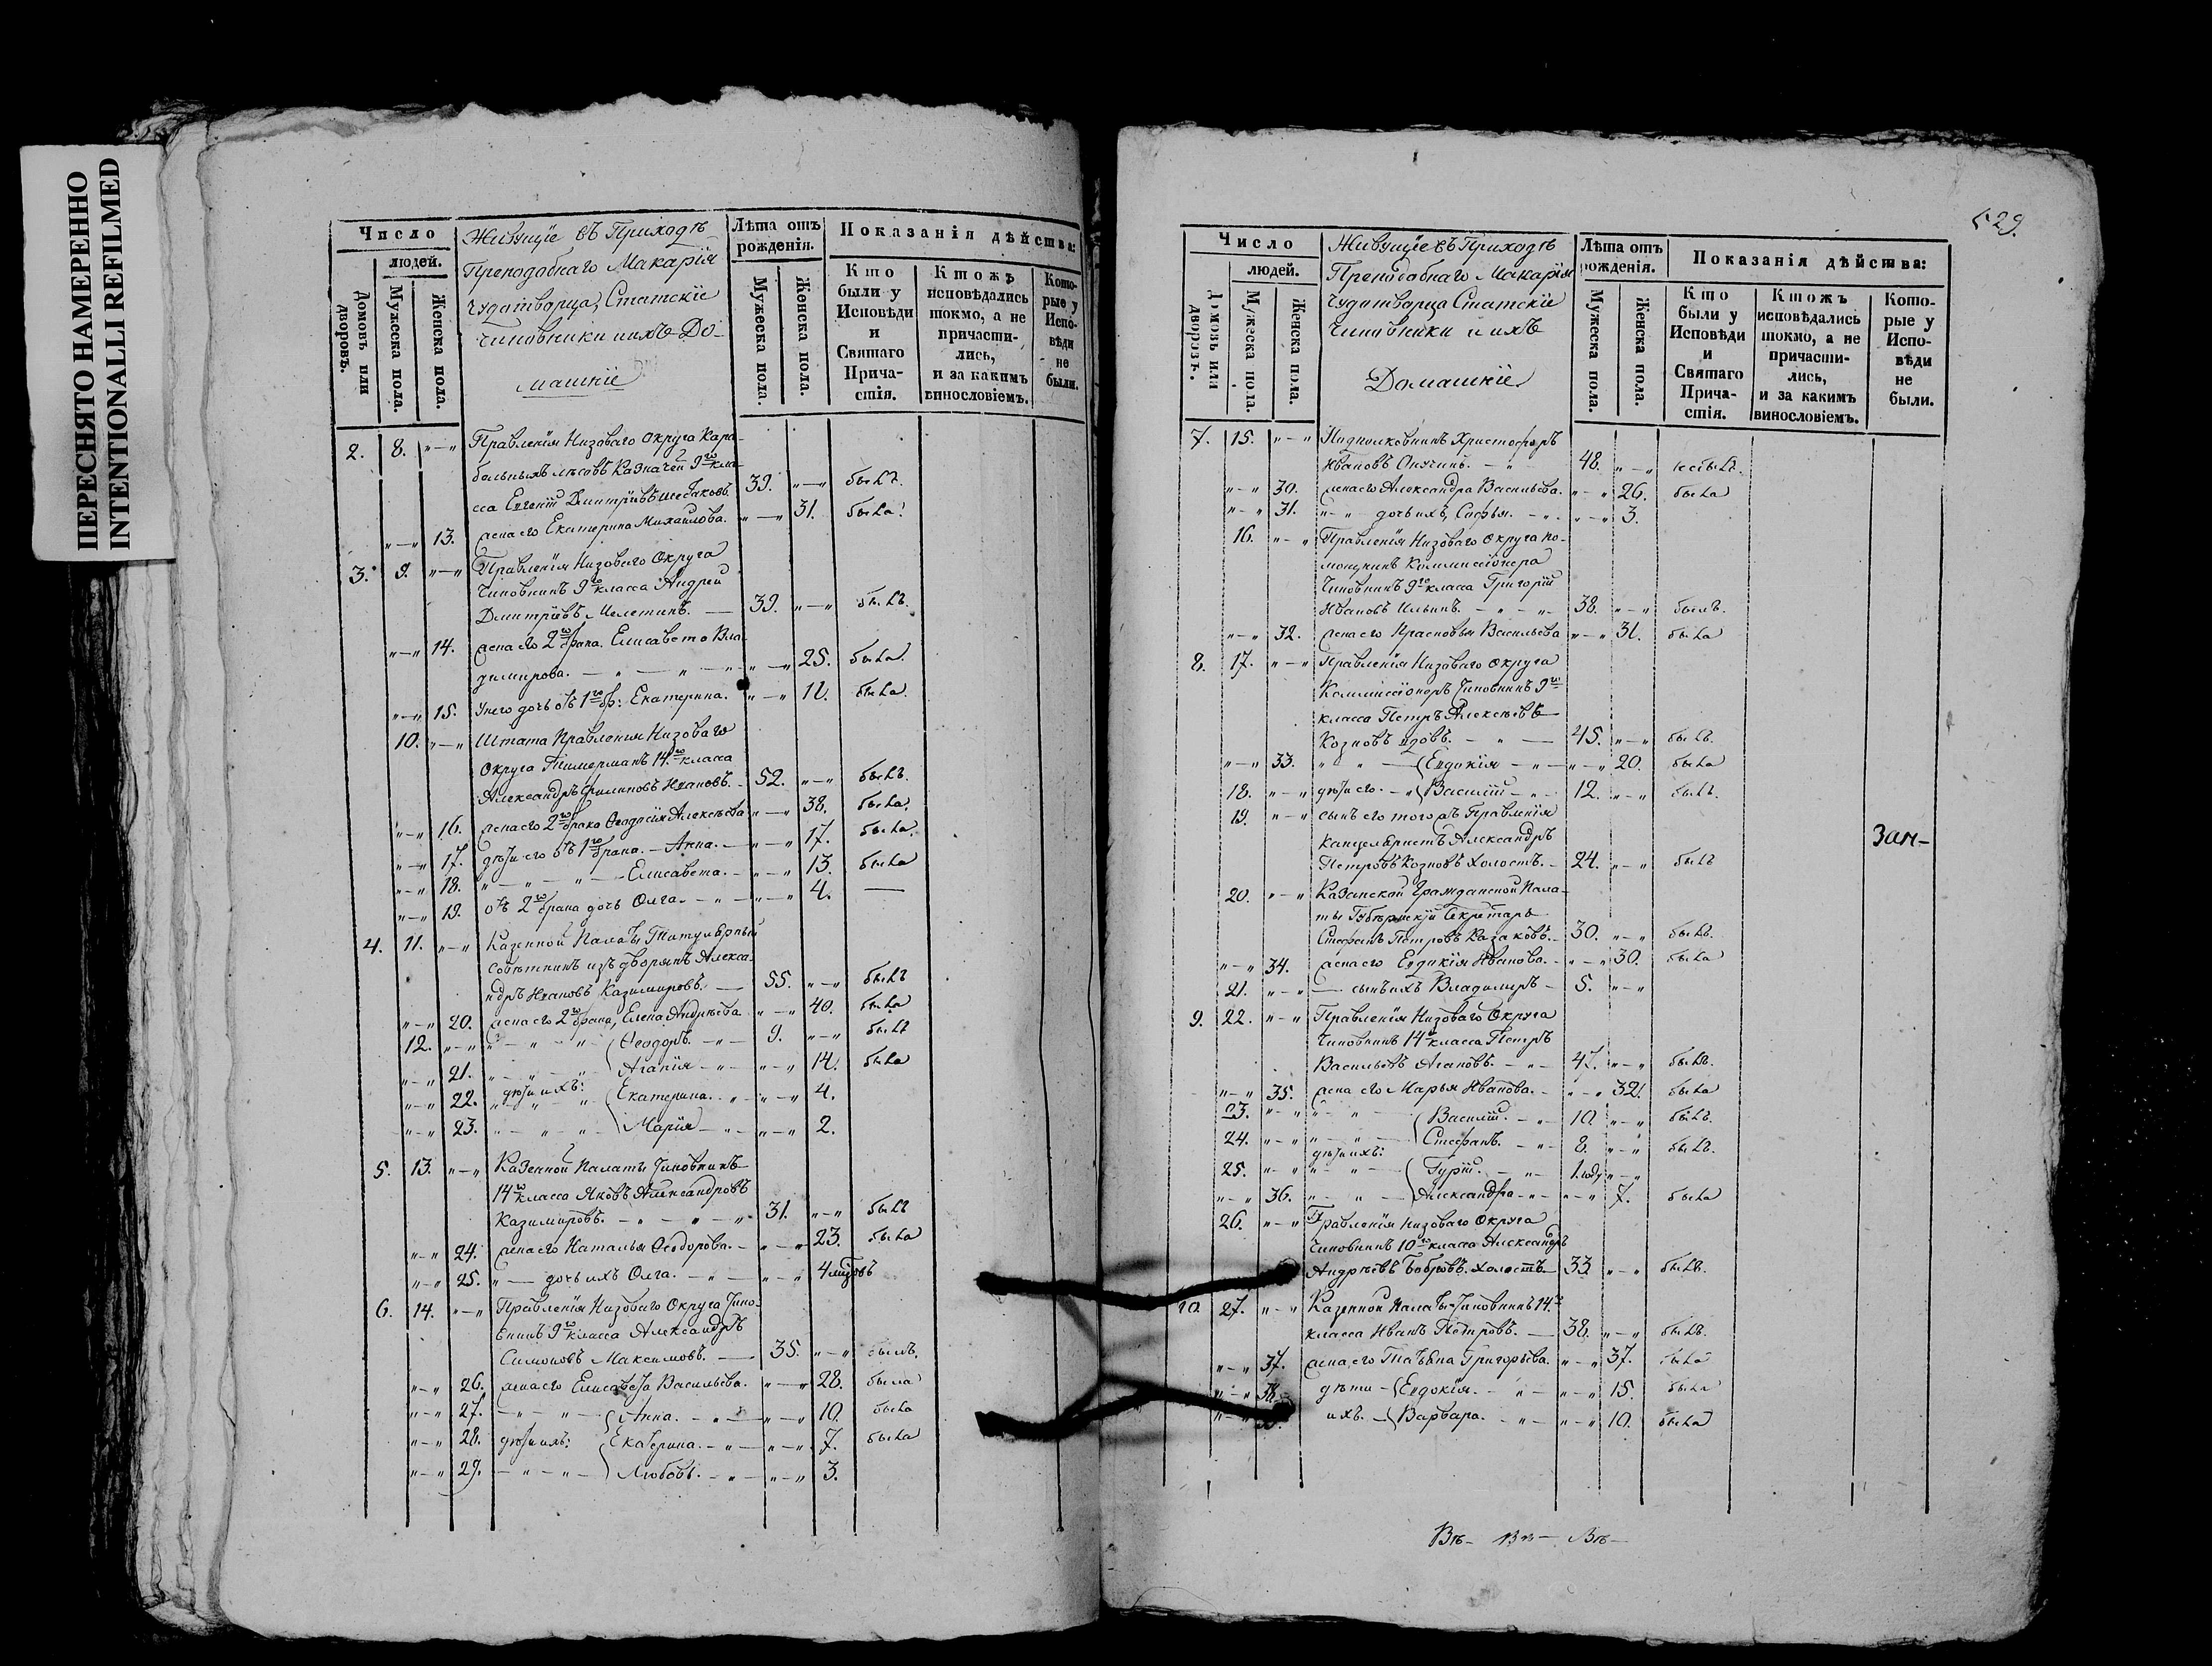 ПЕРЕСНЯТО НАМЕРЕННО
INTENTIONALLI REFILMED
Число
людей.
Домовъ или дворовъ.
Мужеска пола.
Женска пола.
Живущіе въ Приходѣ
Преподобнаго Макарія
Чудотворца, Статскіе
Чиновники и ихъ До-
машніе
Лѣта отъ рожденія.
Мужеска пола.
Женска пола.
Показанія дѣйства:
Кто были у Исповѣди и Святаго Прича-стія.
Ктожъ исповѣдались токмо, а не причасти-лись, и за какимъ винословіемъ.
Кото-рые у Испо-вѣди не были.
2. 8. „—„ Правленія Низоваго Округа Кара-
бельныхъ лѣсовъ Казначей 9го кла-
сса Евгеній Дмитріевъ 39. „—„ былъ.
„—„ 13. жена его Екатерина Михайлова. „—„ 31. была.
3. 9. „—„ Правленія Низоваго Округа
Чиновникъ 9го класса Андрей
Дмитріевъ Мелетинъ. — 39. „—„ былъ.
„—„ 14. жена его 2го брака Елисавета Вла-
димирова. — „ — „ — „—„ 25. была.
„—„ 15. У него дочь отъ 1го бр: Екатерина. „—„ 12. была.
10. „—„ Штата Правленія Низоваго
Округа Тимерманъ 14го класса
Александръ Филиповъ Ивановъ. — 52. „—„ былъ.
„—„ 16. жена его 2го брака Ѳеодосія Алексѣева „—„ 38. была.
„—„ 17. дѣти его отъ 1го брака. — Анна. — „—„ 17. была.
„—„ 18. „ — „ — „ — Елисавета. — „—„ 13. была
„—„ 19. отъ 2го брака дочь Олга. — „ — „—„ 4. —
4. 11. „—„ Казенной Палаты Титулярный
Совѣтникъ изъ дворянъ Алекса-
ндръ Ивановъ Казимировъ. — 55. „—„ былъ
„—„ 20. жена его 2го брака, Елена Андрѣева „—„ 40. была
12. „—„ „ — „ — „ Ѳеодоръ. — „— 9. „—„ былъ
„—„ 21. „ — „ — „ Агапія — „— „—„ 14. была
„—„ 22. дѣти ихъ: Екатерина. — „ „—„ 4.
„—„ 23. „ — „ — „ Марія — „— „—„ 2.
5. 13. „—„ Казенной Палаты Чиновникъ
14го класса Яковъ Александровъ
Казимировъ. — „ — „ — „ 31. „—„ былъ
„—„ 24. жена его Наталья Ѳеодорова. — „—„ 23. была
„—„ 25. „ — дочь ихъ Олга. — „ — „—„ 4 мцовъ
6. 14. „—„ Правленія Низоваго Округа Чино-
вникъ 9го класса Александръ
Симоновъ Максимовъ. — 35. „—„ былъ.
„—„ 26. жена его Елисавета Васильева. „—„ 28. была
„—„ 27. — „ — „ — Анна. — „ — „—„ 10. была
„—„ 28. дѣти ихъ: Екатерина. — „ — „—„ 7. была
„—„ 29. — „ — „ — Любовь. — „ — „—„ 3.
529.
Число
людей.
Домовъ или дворовъ.
Мужеска пола.
Женска пола.
Живущіе въ Приходѣ
Преподобнаго Макарія
Чудотворца Статскіе
Чиновники и ихъ
Домашніе
Лѣта отъ рожденія.
Мужеска пола.
Женска пола.
Показанія дѣйства:
Кто были у Исповѣди и Святаго Прича-стія.
Ктожъ исповѣдались токмо, а не причасти-лись, и за какимъ винословіемъ.
Кото-рые у Испо-вѣди не были.
7. 15. „—„ Подполковникъ Христофоръ
Ивановъ Онучинъ. — „ 48. „—„
„—„ 30. жена его Александра Васильева. „—„ 26. была
„—„ 31. „—„ дочь ихъ, Софья. — „. „—„ 3.
16. „—„ Правленія Низоваго Округа по-
мощникъ Коммиссіонера
Чиновникъ 9го класса Григорій
Ивановъ Ильинъ. — „ — „— 38. „—„ былъ.
„—„ 32. жена его Прасковья Васильева „—„ 31. была
8. 17. „—„ Правленія Низоваго Округа
Коммиссіонеръ Чиновникъ 9го
класса Петръ Алексѣевъ
Козновъ вдовъ. — „ — 45. „—„ былъ.
„—„ 33. „ „ — Евдокія — „— „—„ 20. была
18. „—„ дѣти его. — „ Василій — „— 12. „—„ былъ.
19. „—„ сынъ его того жъ Правленія
Канцеляристъ Александръ
Петровъ Козновъ холостъ. — 24. „—„ былъ
Зап—
20. „—„ Казанской Гражданской Пала-
ты Губернскій Секретарь
Стефанъ Петровъ Казаковъ. — 30. „—„ былъ.
„—„ 34. жена его Евдокія Иванова. — „—„ 30. была
21. „—„ — сынъ ихъ Владимиръ — 5. „—„
9. 22. „—„ Правленія Низоваго Округа
Чиновникъ 14го класса Петръ
Васильевъ Агаповъ. — „— 47. „—„ былъ.
„—„ 35. жена его Марья Иванова. — „—„ 32. была
23. „—„ „ — „ — Василій. — „— 10. „—„ былъ.
24. „—„ „ — „ — Стефанъ. — „— 8. „—„ былъ.
дѣти ихъ:
25. „—„ „ — „ — Гурій. — „— 1 году „—„
„—„ 36. „ — „ — Александра — „— „—„ 7. была
26. „—„ Правленія Низоваго Округа
Чиновникъ 10го класса Александръ
Андрѣевъ Бобровъ. холостъ — 33. „—„ былъ.
10. 27. „—„ Казенной Палаты Чиновникъ 14го
класса Иванъ Петровъ. — 38. „—„ былъ.
„—„ 37. жена его Татьяна Григорьева. „—„ 37. была
„—„ 38. дѣти — Евдокія. — „ — „—„ 15. была
„—„ ихъ. — Варвара. — „ — „—„ 10. была
Въ— Въ— Въ—